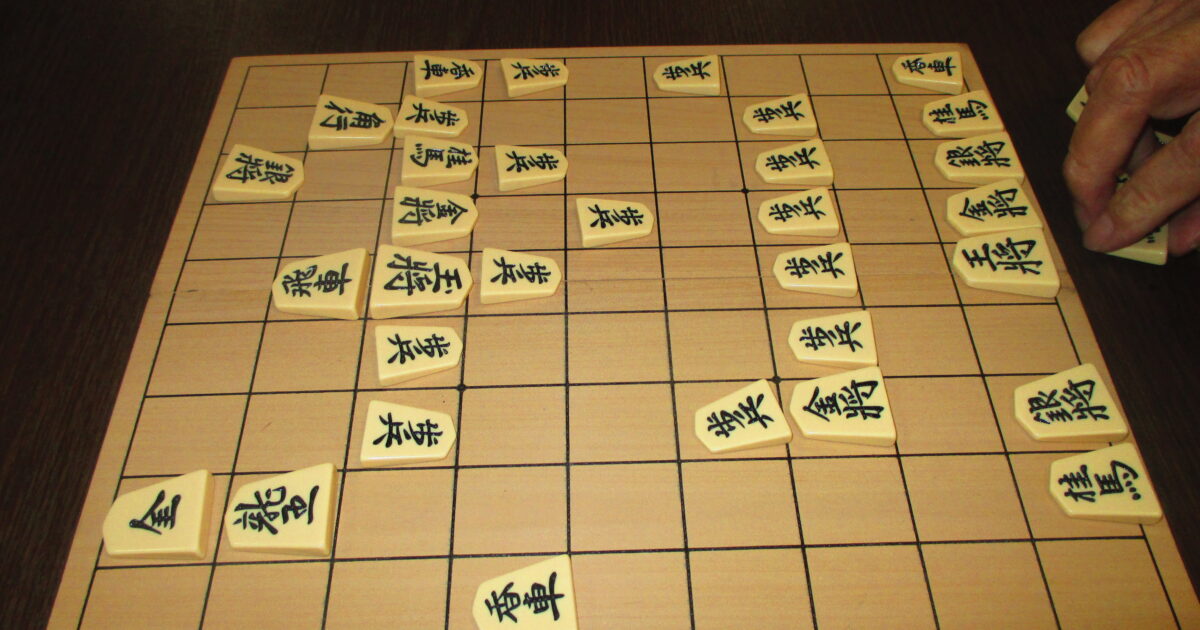 香車
歩兵
歩兵
香車
角行
歩兵
歩兵
桂馬
銀將
桂馬
歩兵
歩兵
銀將
金將
歩兵
歩兵
金將
飛車
玉將
歩兵
歩兵
王將
歩兵
歩兵
歩兵
歩兵
金將
銀將
全
龍王
桂馬
香車